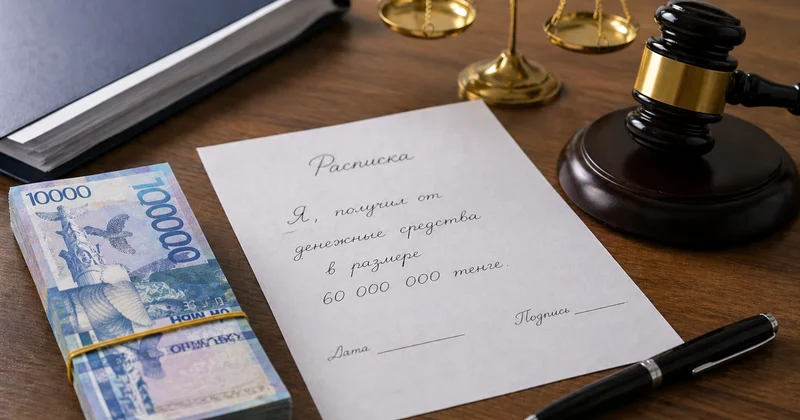 Расписка
Я, получил от
денежные средства
в размере
60 000 000 тенге.
Дата
Подпись
10000